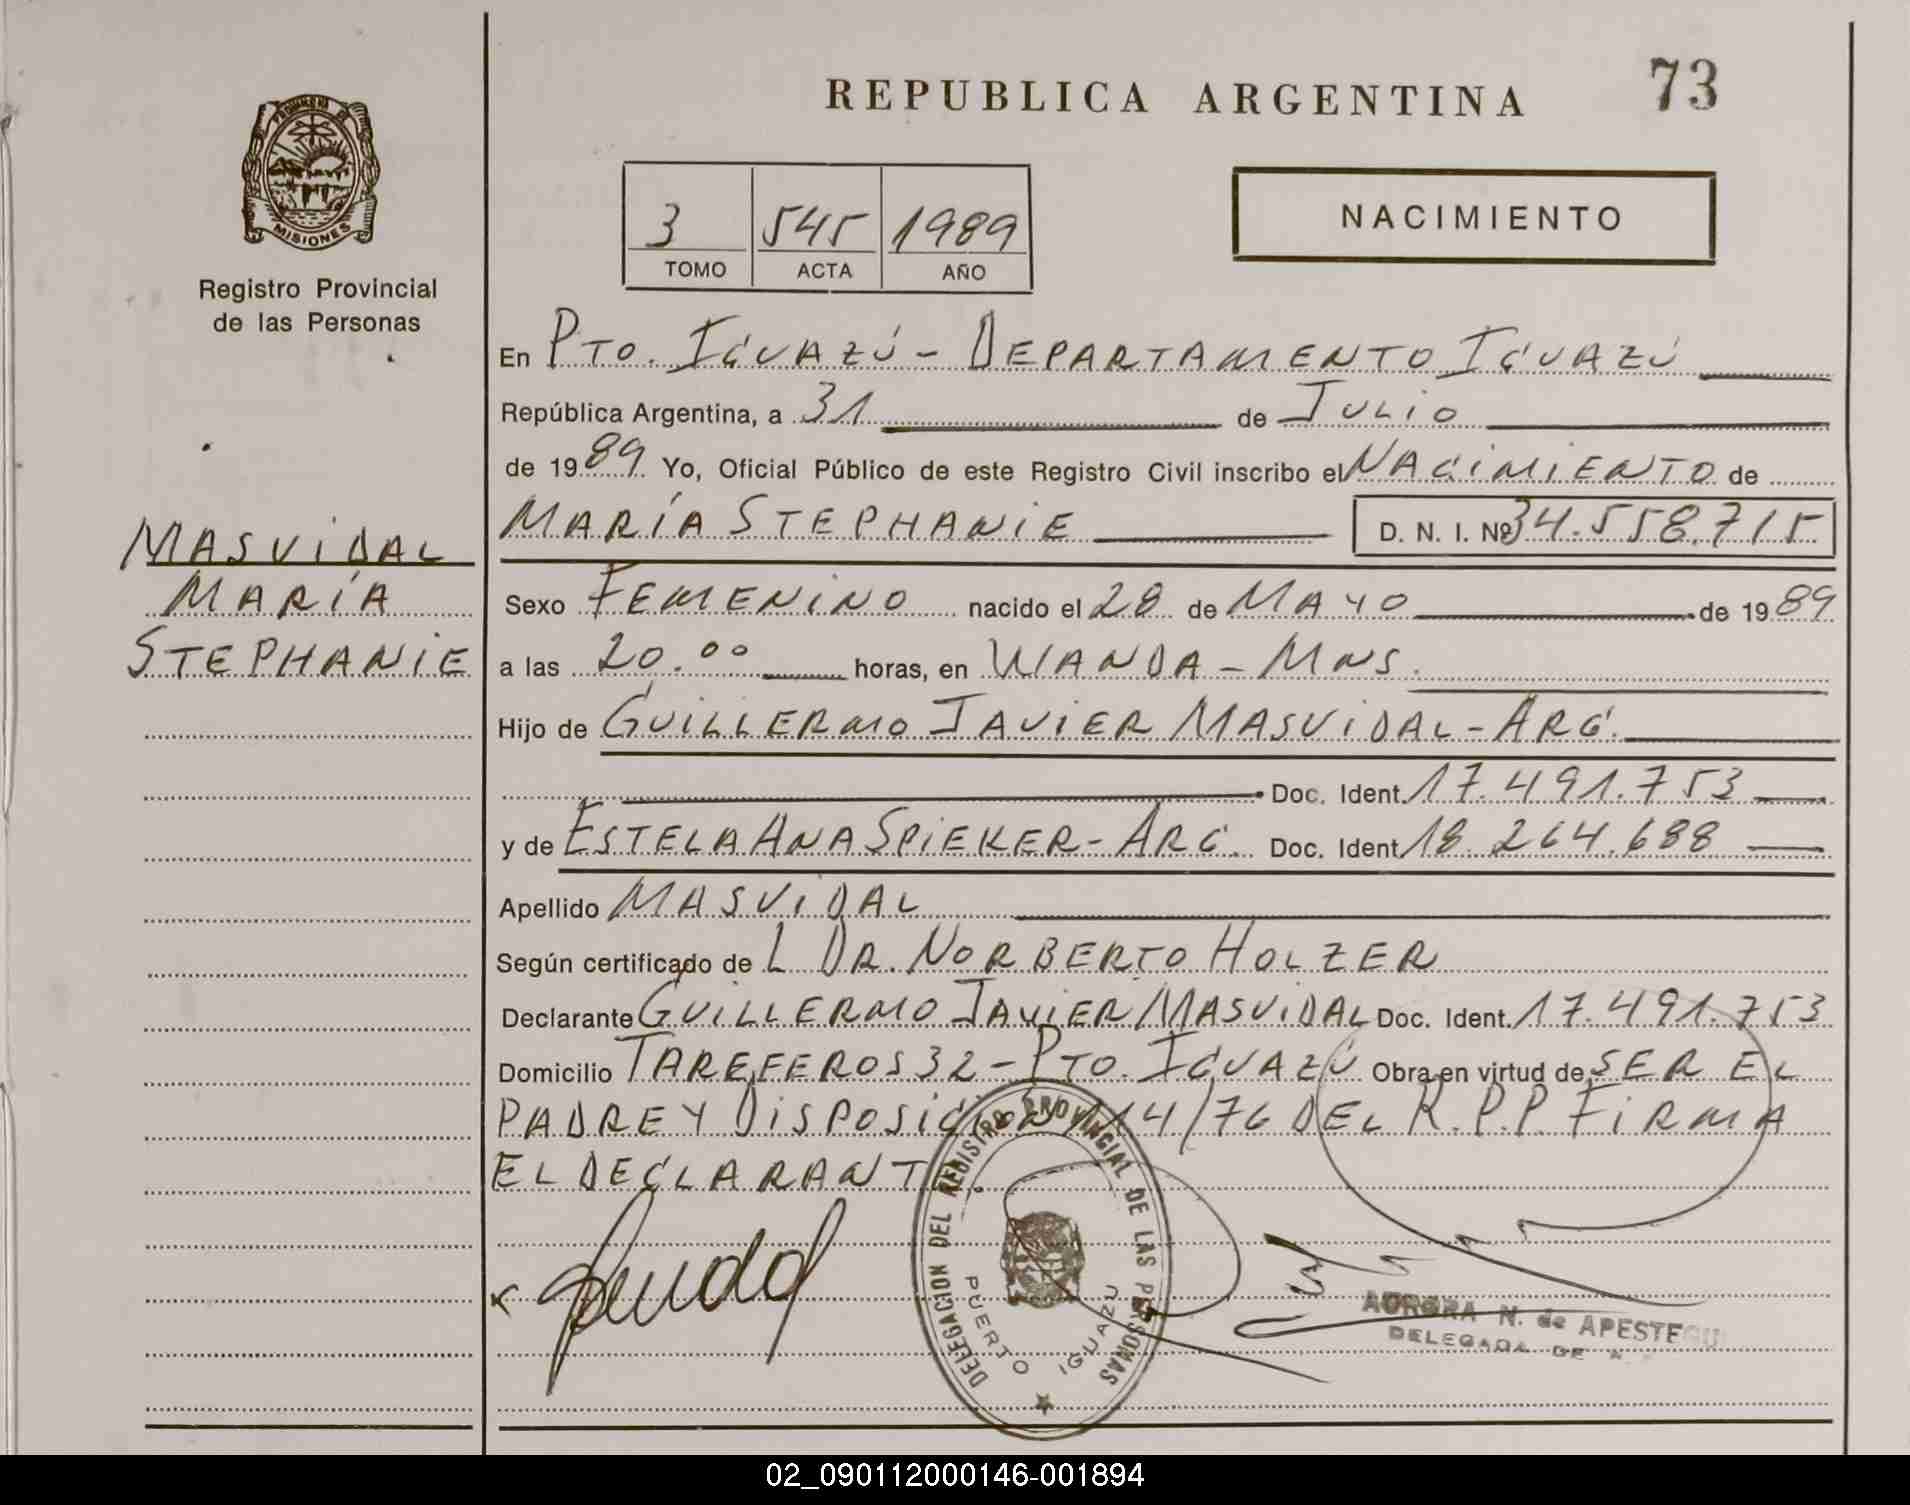 REPUBLICA ARGENTINA 73
PROVINCIA DE
MISIONES
Registro Provincial
de las Personas
3 545 1989
TOMO ACTA AÑO
NACIMIENTO
En PTO. IGUAZÚ - DEPARTAMENTO IGUAZÚ
República Argentina, a 31 de JULIO
de 1989 Yo, Oficial Público de este Registro Civil inscribo el NACIMIENTO de
MARÍA STEPHANIE D. N. I. Nº 34.558.715
MASVIDAL
MARÍA
STEPHANIE
Sexo FEMENINO nacido el 28 de MAYO de 1989
a las 20.00 horas, en WANDA - MNS.
Hijo de GUILLERMO JAVIER MASVIDAL - ARG.
Doc. Ident. 17.491.753
y de ESTELA ANA SPIEKER - ARG. Doc. Ident. 18.264.688
Apellido MASVIDAL
Según certificado de L DR. NORBERTO HOLZER
Declarante GUILLERMO JAVIER MASVIDAL Doc. Ident. 17.491.753
Domicilio TAREFEROS 32 - PTO. IGUAZÚ Obra en virtud de SER EL
PADRE Y DISPOSICIÓN 114/76 DEL R.P.P. FIRMA
EL DECLARANTE.
DELEGACION DEL REGISTRO PROVINCIAL DE LAS PERSONAS
PUERTO IGUAZU
AURORA N. de APESTEGUI
DELEGADA DE
02_090112000146-001894